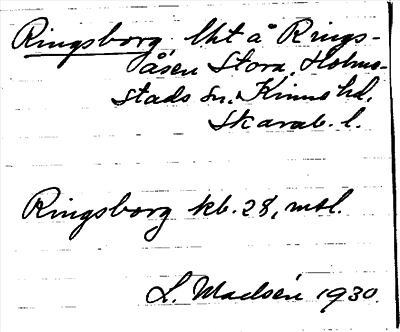 Ringsborg lht å Rings-
åsen Stora, Holme-
stads sn. Kinne hd.
Skarab. l.
Ringsborg kb. 28, mtl.
L. Madsén 1930.